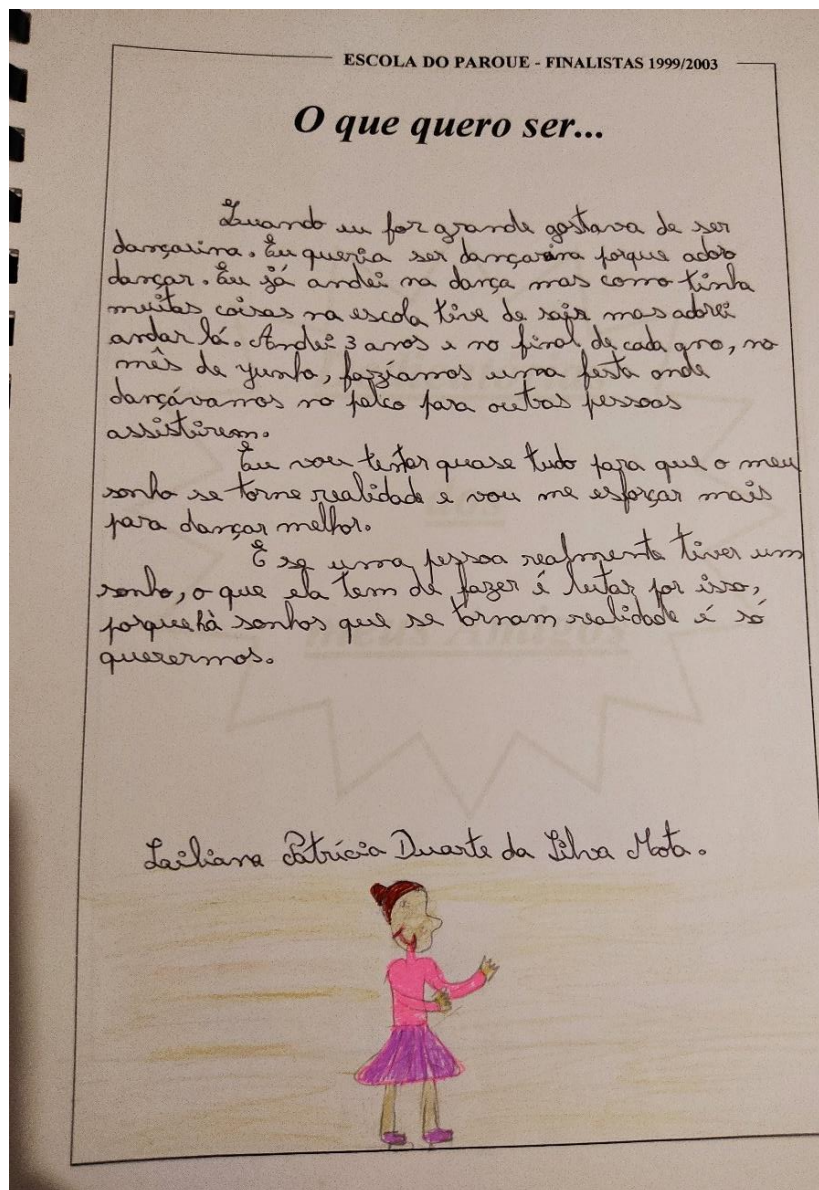 ESCOLA DO PARQUE - FINALISTAS 1999/2003
O que quero ser...
Quando eu for grande gostava de ser
dançarina. Eu queria ser dançarina porque adoro
dançar. Eu já andei na dança mas como tinha
muitas coisas na escola tive de sair mas adorei
andar lá. Andei 3 anos e no final de cada ano, no
mês de yunho, fazíamos uma festa onde
dançávamos no palco para outras pessoas
assistirem.
Eu vou tentar quase tudo para que o meu
sonho se torne realidade e vou me esforçar mais
para dançar melhor.
E se uma pessoa realmente tiver um
sonho, o que ela tem de fazer é lutar por isso,
porque hà sonhos que se tornam realidade é só
querermos.
Patrícia Duarte da Silva Mota.